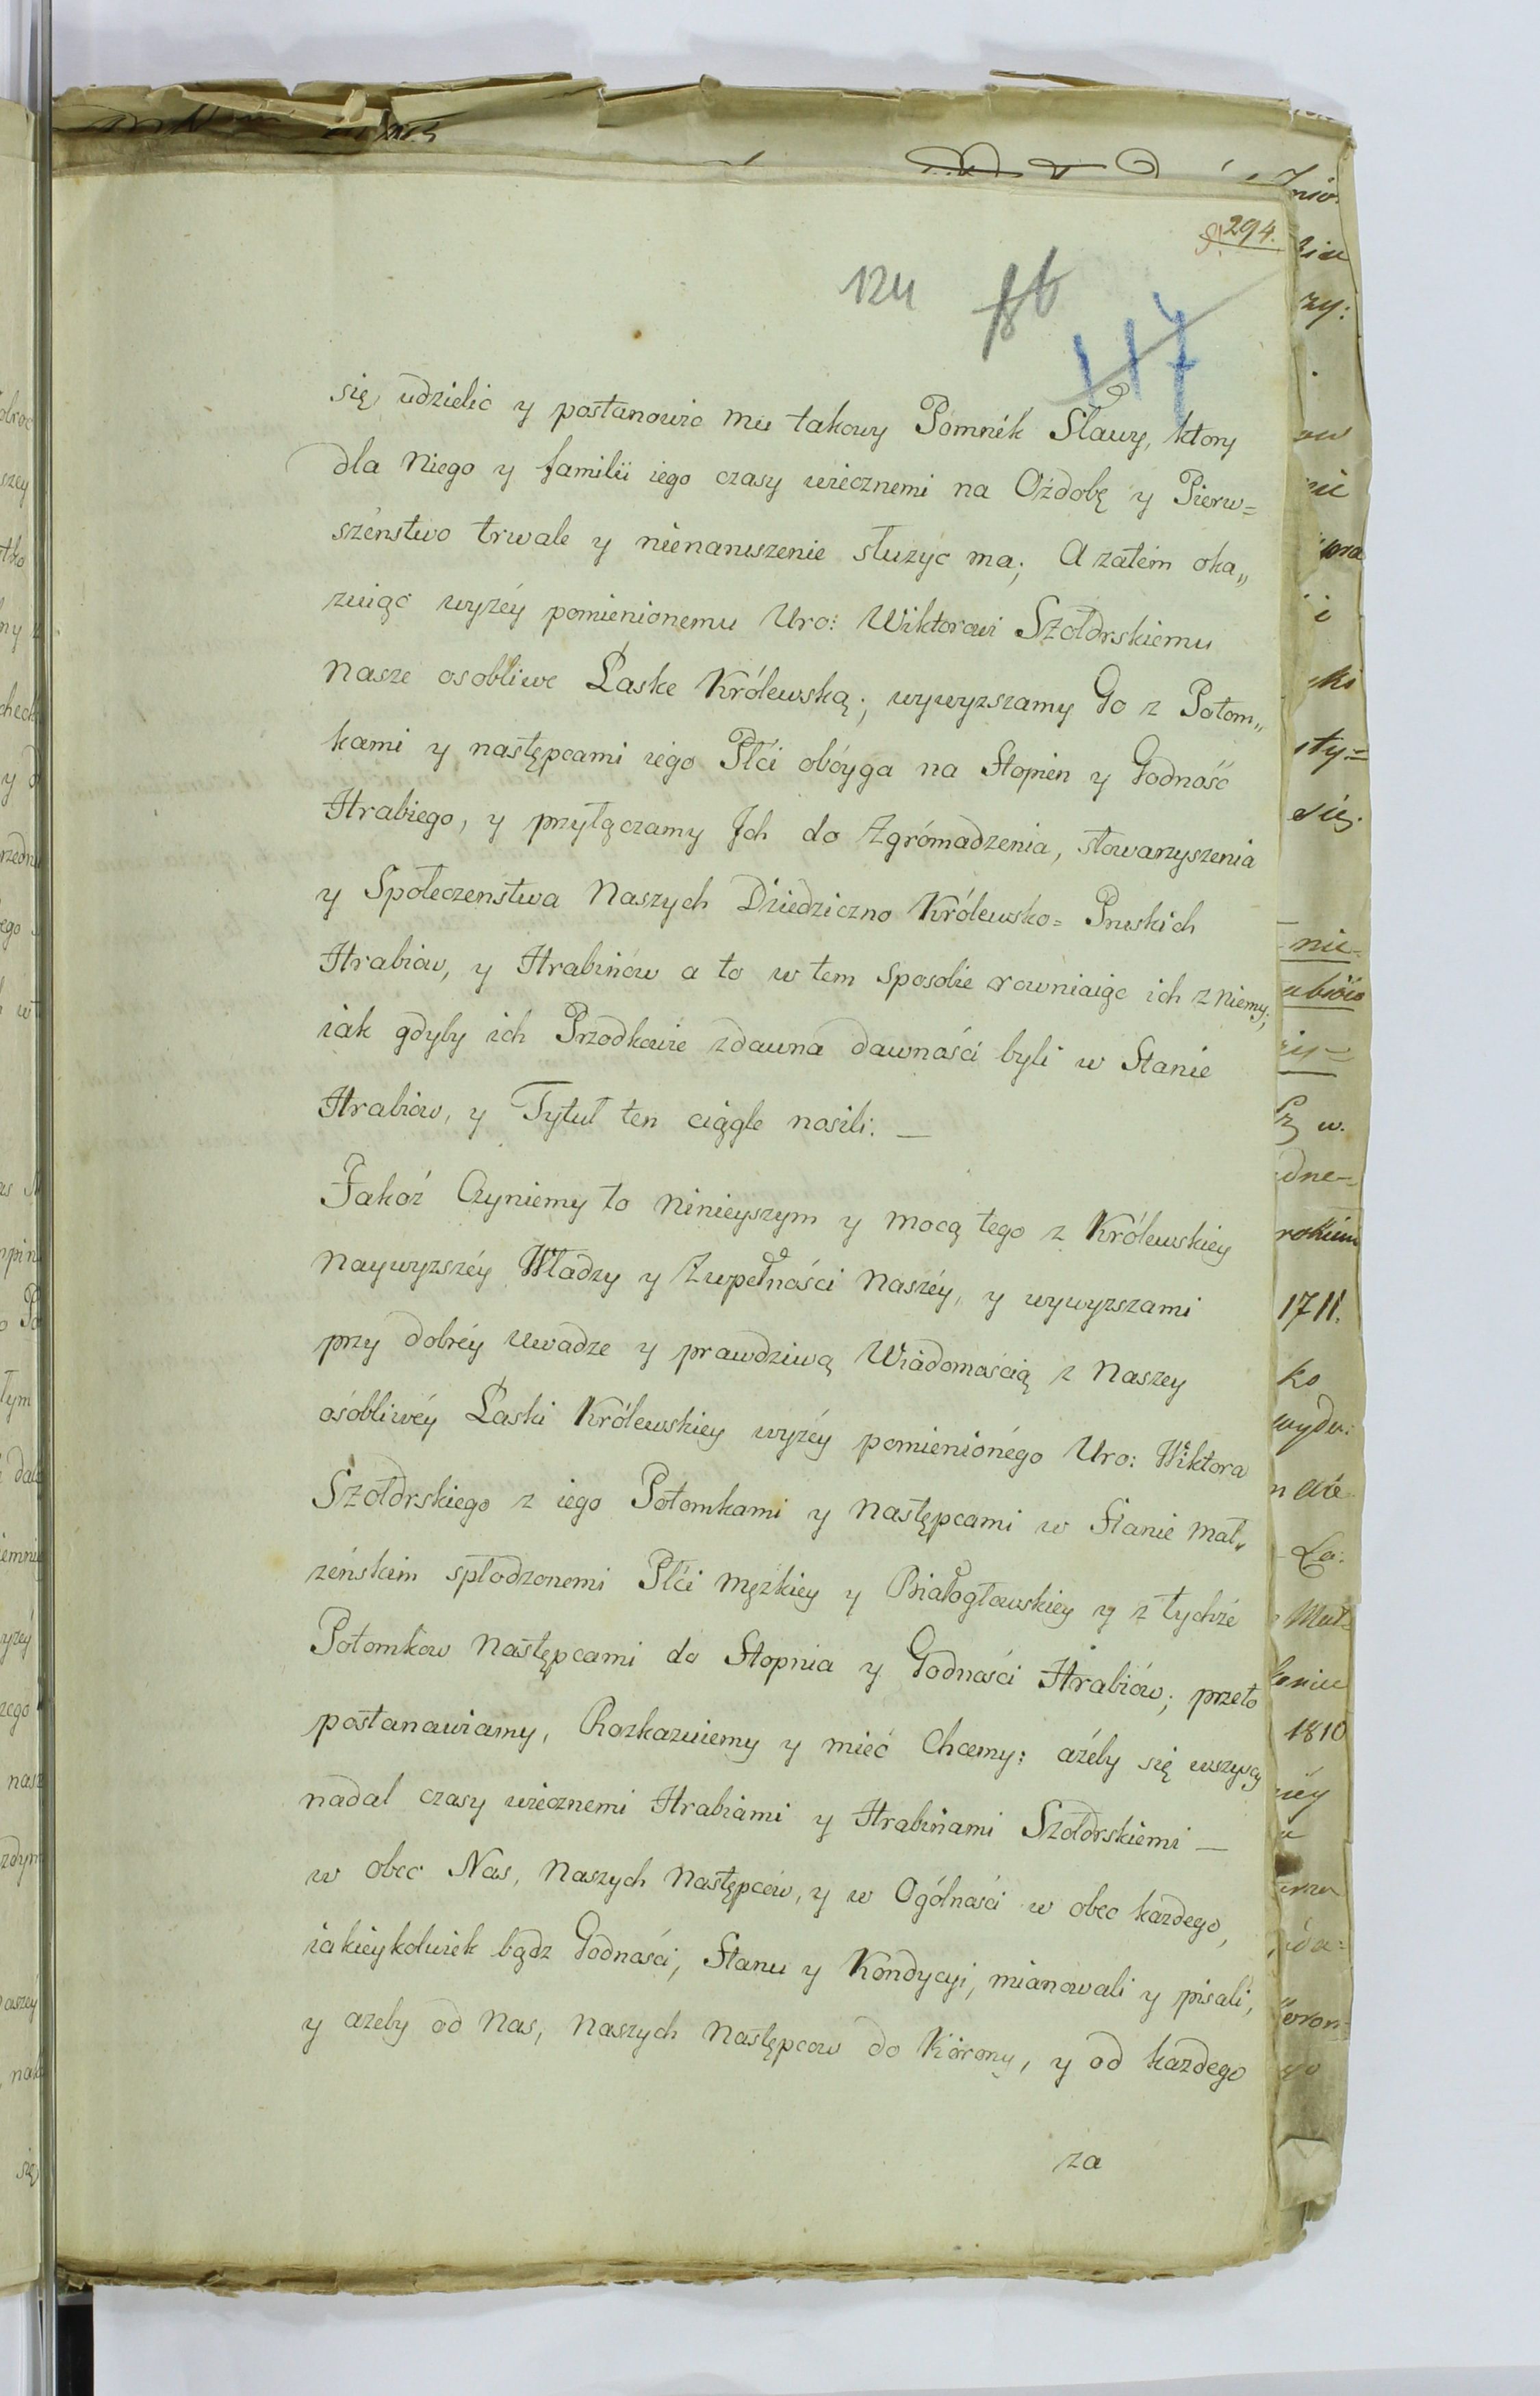 294.
124
117
się udzielic y postanowic mu takowy Pomnik Sławy, ktory
dla Niego y familii iego czasy wiecznemi na Ozdobę y Pierw=
szénstwo trwale y nienaruszenie słuzyc ma; A zatém oka„
zuiąc wyzéy pomienionemu Uro: Wiktorowi Szołdrskiemu
Nasze osobliwe Łaske Królewską; wywyzszamy Go z Potom„
kami y następcami iego Płći obóyga na Stopien y Godność
Hrabiego, y przyłączamy Ich do Zgrómadzenia, stowarzyszenia
y Społeczenstwa Naszych Dziedziczno Królewsko= Pruskich
Hrabiów, y Hrabinów a to w tem Sposobie rowniaiąc ich z niemy;
iak gdyby ich Przodkowie zdawna dawności byli w Stanie
Hrabiów, y Tytuł ten ciągle nosili. —
Jakoż Czyniemy to Ninieyszym y mocą tego z Królewskiey
Naywyzszéy Władzy y Zupełności Naszéy, y wywyzszami
przy dobréy Uwadze y prawdziwą Wiadomością z Naszey
osóbliwéy Łaski Królewskiey wyzéy pomienionégo Uro: Wiktora
Szołdrskiego z iego Potomkami y Następcami w Stanie Mał„
zeńskim spłodzonemi Płći Męzkiey y Białogłowskiey y z tychże
Potomków Następcami do Stopnia y Godności Hrabiów; przeto
postanawiamy, Rozkazuiemy y mieć Chcemy: ażéby się wszyscy
nadal czasy wiecznemi Hrabiami y Hrabinami Szołdrskiemi —
w obec Nas, Naszych Następców, y w Ogólności w obec kazdego,
iakieykolwiek bądz Godności, Stanu y Kondycyi, mianowali y pisali,
y azeby od Nas, Naszych Następcow do Korony, y od kazdego
za